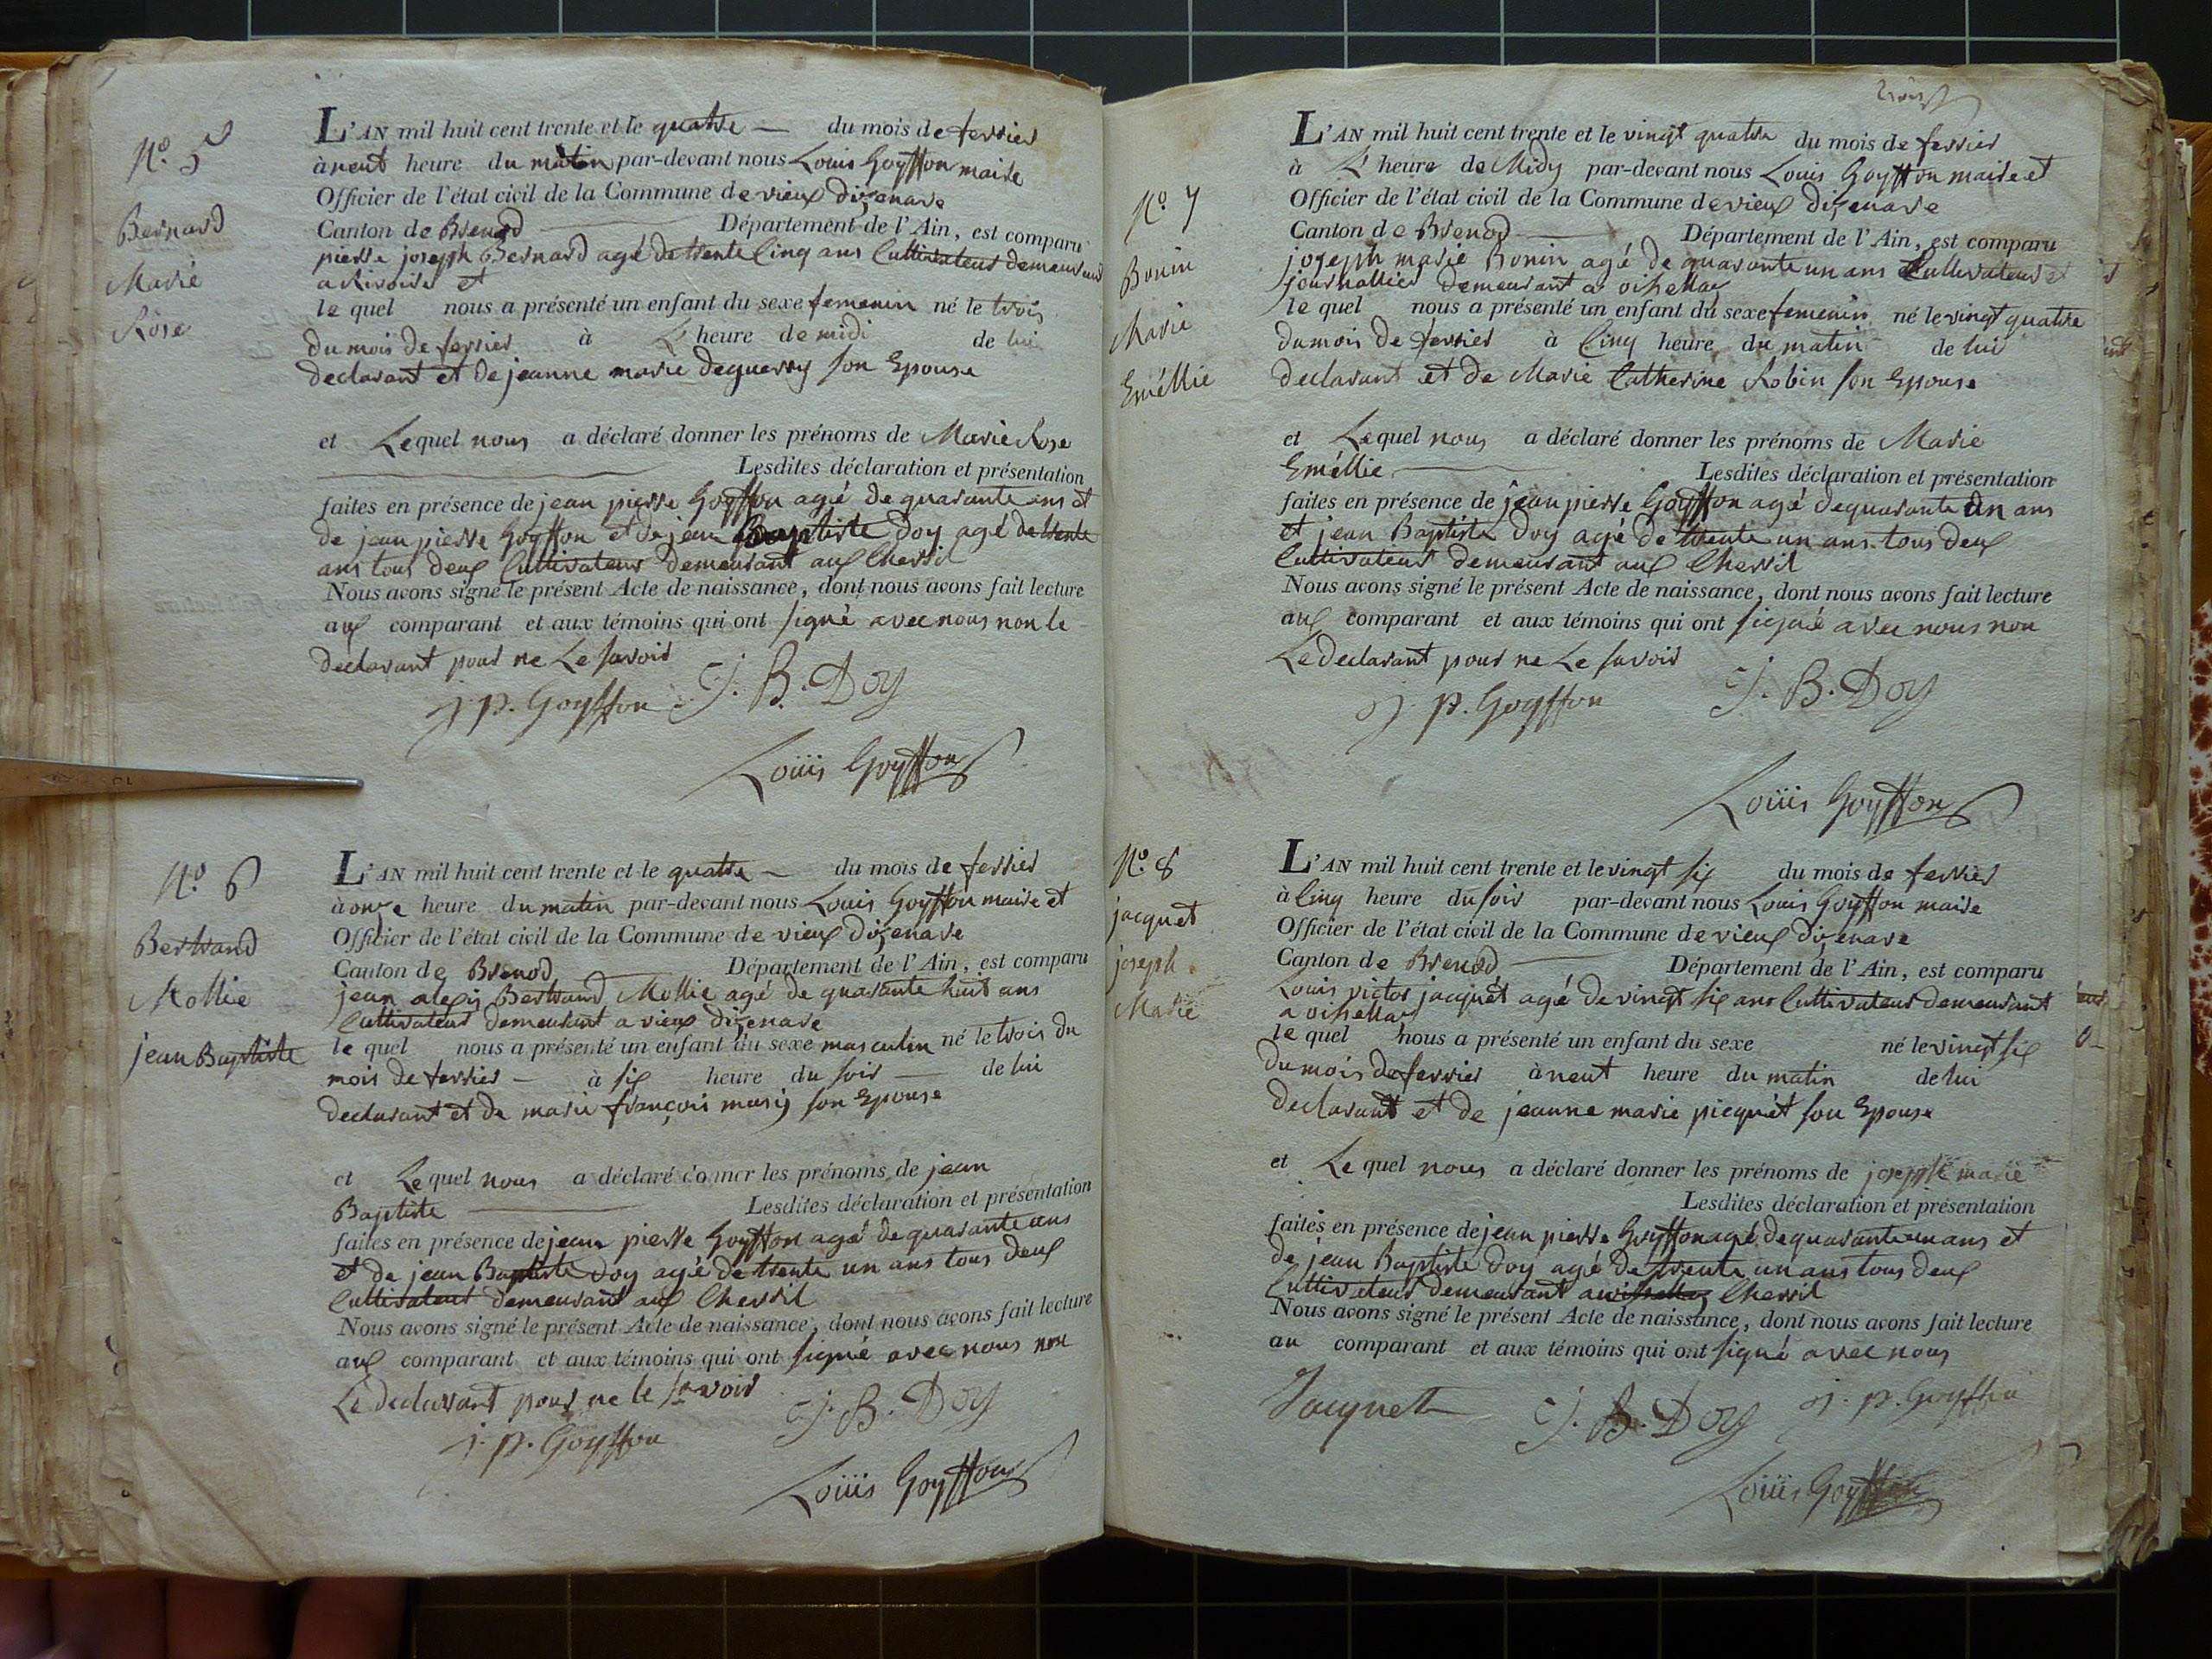 N.o 5
Bernard
Marie
Rose
L'AN mil huit cent trente et le quatre — du mois de fevrier
à neuf heure du matin par-devant nous Louis Goyffon maire
Officier de l'état civil de la Commune de vieux dizenave
Canton de Brenod — Département de l'Ain, est comparu
pierre joseph Bernard agé de trente Cinq ans Cultivateur demeurant
a Rivoire et
le quel nous a présenté un enfant du sexe femenin né le trois
du mois de fevrier à L' heure de midi de lui
declarant et de jeanne marie Deguerry son Epouse
et Lequel nous a déclaré donner les prénoms de Marie Rose
— Lesdites déclaration et présentation
faites en présence de jean pierre Goyffon agé de quarante ans et
de jean pierre Goyffon et de jean Baptiste Doy agé de trente
ans tous deux Cultivateurs Demeurant aux Chevril
Nous avons signé le présent Acte de naissance, dont nous avons fait lecture
aux comparant et aux témoins qui ont signé avec nous non le
declarant pour ne Le savoir
j. p. Goyffon J. B. Doy
Loüis Goyffon
N.o 6
Bertrand
Mollie
jean Baptiste
L'AN mil huit cent trente et le quatre — du mois de fevrier
à onze heure du matin par-devant nous Louis Goyffon maire et
Officier de l'état civil de la Commune de vieux dizenave
Canton de Brenod Département de l'Ain, est comparu
jean alexis Bertrand Mollie agé de quarante huit ans
Cultivateur demeurant a vieux dizenave
le quel nous a présenté un enfant du sexe masculin né le trois du
mois de fevrier — à six heure du soir — de lui
declarant et de marie françois musy son Epouse
et Lequel nous a déclaré donner les prénoms de jean
Baptiste — Lesdites déclaration et présentation
faites en présence de jean pierre Goyffon agé de quarante ans
et de jean Baptiste Doy agé de trente un ans tous deux
Cultivateur demeurant aux Chevril
Nous avons signé le présent Acte de naissance, dont nous avons fait lecture
aux comparant et aux témoins qui ont signé avec nous non
Le declarant pour ne le savoir
j. p. Goyffon J. B. Doy
Loüis Goyffon
trois
N.o 7
Bonin
Marie
Eméllie
L'AN mil huit cent trente et le vingt quatre du mois de fevrier
à L' heure de Midy par-devant nous Louis Goyffon maire et
Officier de l'état civil de la Commune de vieux dizenave
Canton de Brenod — Département de l'Ain, est comparu
joseph marie Bonin agé de quarante un ans Cultivateur et
journallier demeurant a oisellaz
le quel nous a présenté un enfant du sexe femenin né le vingt quatre
du mois de fevrier à Cinq heure du matin de lui
declarant et de Marie Catherine Robin son Epouse
et Lequel nous a déclaré donner les prénoms de Marie
Eméllie — Lesdites déclaration et présentation
faites en présence de jean pierre Goyffon agé de quarante un ans
et jean Baptiste Doy agé de trente un ans tous deux
Cultivateur demeurant aux Chevril
Nous avons signé le présent Acte de naissance, dont nous avons fait lecture
aux comparant et aux témoins qui ont signé avec nous non
Le declarant pour ne Le savoir
j. p. Goyffon J. B. Doy
Loüis Goyffon
N.o 8
jacquet
joseph
Marie
L'AN mil huit cent trente et le vingt six du mois de fevrier
à Cinq heure du soir par-devant nous Louis Goyffon maire
Officier de l'état civil de la Commune de vieux dizenave
Canton de Brenod — Département de l'Ain, est comparu
Louis victor jacquet agé de vingt six ans Cultivateur demeurant
a oisellaz
le quel nous a présenté un enfant du sexe né le vingt six
du mois de fevrier à neuf heure du matin de lui
declarant et de jeanne marie picquet son Epouse
et Le quel nous a déclaré donner les prénoms de joseph marie
Lesdites déclaration et présentation
faites en présence de jean pierre Goyffon agé de quarante un ans et
de jean Baptiste Doy agé de trente un ans tous deux
Cultivateur demeurant a Chevril
Nous avons signé le présent Acte de naissance, dont nous avons fait lecture
au comparant et aux témoins qui ont signé avec nous
Jacquet J. B. Doy j. p. Goyffon
Loüis Goyffon